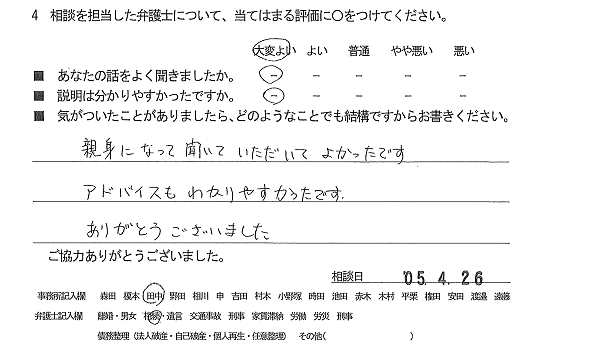 4 相談を担当した弁護士について、当てはまる評価に○をつけてください。
大変よい よい 普通 やや悪い 悪い
■ あなたの話をよく聞きましたか。 － － － － －
■ 説明は分かりやすかったですか。 － － － － －
■ 気がついたことがありましたら、どのようなことでも結構ですからお書きください。
親身になって聞いていただいてよかったです
アドバイスもわかりやすかったです.
ありがとうございました
ご協力ありがとうございました。
相談日 '05.4.26
事務所記入欄 森田 榎本 田中 野田 相川 申 吉田 村本 小野塚 時田 池田 赤木 木村 平栗 権田 安田 渡邉 遠藤
弁護士記入欄 離婚・男女 相続・遺言 交通事故 刑事 家賃滞納 労働 労災 刑事
債務整理（法人破産・自己破産・個人再生・任意整理） その他（ ）